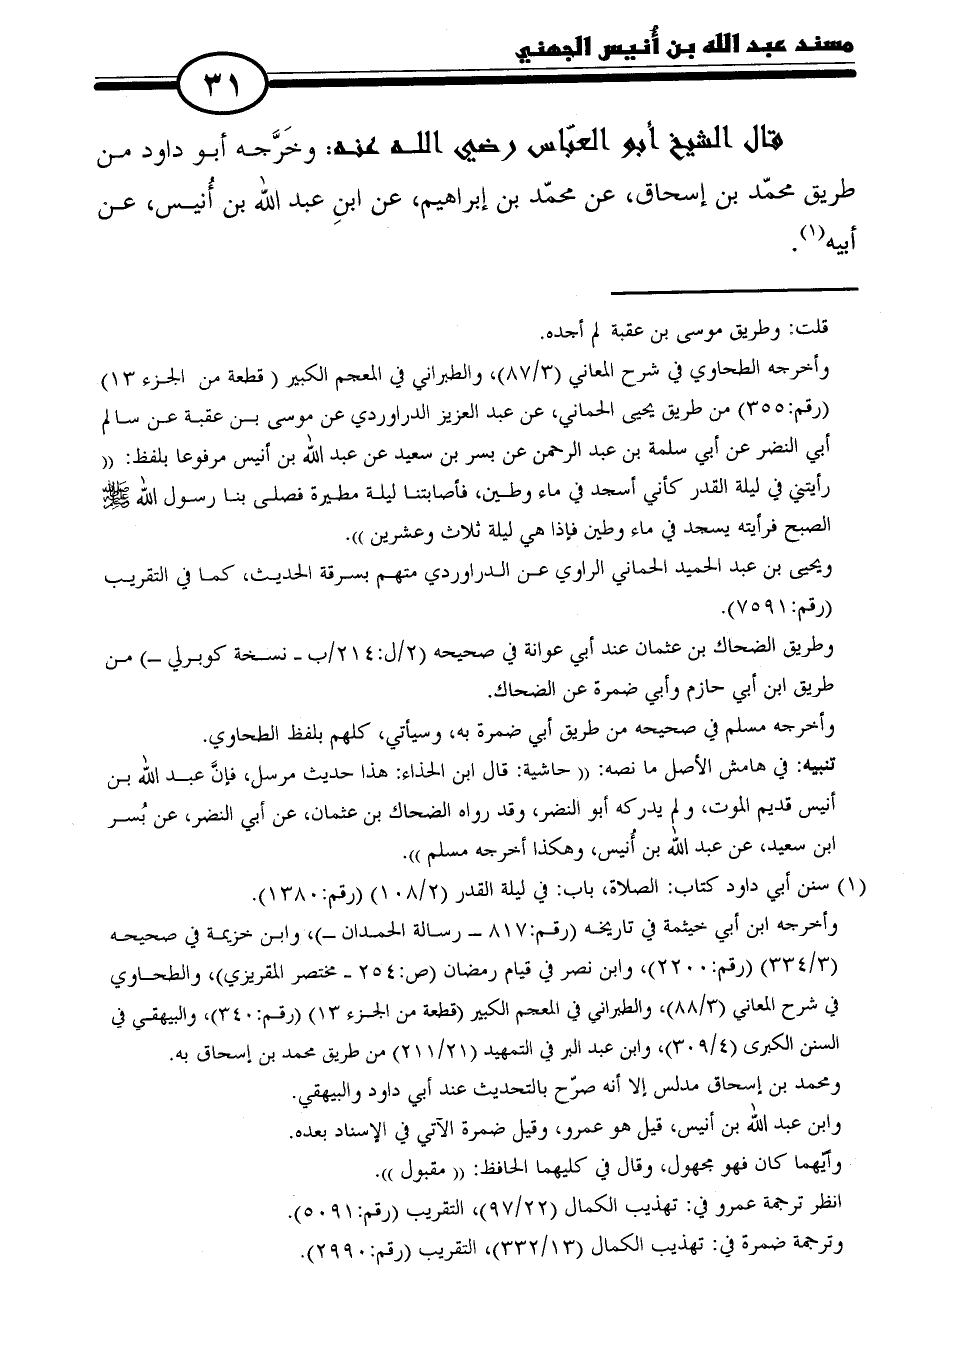 مسند عبد الله بن أُنيس الجهني
٣١
قال الشيخ أبو العبّاس رضي الله عنه: وخَرَّجه أبو داود من
طريق محمّد بن إسحاق، عن محمّد بن إبراهيم، عن ابنِ عبد الله بن أُنيس، عن
أبيه(١).
قلت: وطريق موسى بن عقبة لم أجده.
وأخرجه الطحاوي في شرح المعاني (٨٧/٣)، والطبراني في المعجم الكبير ( قطعة من الجزء ١٣)
(رقم:٣٥٥) من طريق يحيى الحماني، عن عبد العزيز الدراوردي عن موسى بن عقبة عن سالم
أبي النضر عن أبي سلمة بن عبد الرحمن عن بسر بن سعيد عن عبد الله بن أنيس مرفوعا بلفظ: ((
رأيتني في ليلة القدر كأني أسجد في ماء وطين، فأصابتنا ليلة مطيرة فصلى بنا رسول الله ﷺ
الصبح فرأيته يسجد في ماء وطين فإذا هي ليلة ثلاث وعشرين )).
ويحيى بن عبد الحميد الحماني الراوي عن الدراوردي متهم بسرقة الحديث، كما في التقريب
(رقم:٧٥٩١).
وطريق الضحاك بن عثمان عند أبي عوانة في صحيحه (٢/ل:٢١٤/ب ـ نسخة كوبرلي ـ) من
طريق ابن أبي حازم وأبي ضمرة عن الضحاك.
وأخرجه مسلم في صحيحه من طريق أبي ضمرة به، وسيأتي، كلهم بلفظ الطحاوي.
تنبيه: في هامش الأصل ما نصه: (( حاشية: قال ابن الحذاء: هذا حديث مرسل، فإنَّ عبد الله بن
أنيس قديم الموت، ولم يدركه أبو النضر، وقد رواه الضحاك بن عثمان، عن أبي النضر، عن بُسر
ابن سعيد، عن عبد الله بن أُنيس، وهكذا أخرجه مسلم )).
(١) سنن أبي داود كتاب: الصلاة، باب: في ليلة القدر (١٠٨/٢) (رقم:١٣٨٠).
وأخرجه ابن أبي خيثمة في تاريخه (رقم:٨١٧ ـ رسالة الحمدان ـ)، وابن خزيمة في صحيحه
(٣٣٤/٣) (رقم:٢٢٠٠)، وابن نصر في قيام رمضان (ص:٢٥٤ ـ مختصر المقريزي)، والطحاوي
في شرح المعاني (٨٨/٣)، والطبراني في المعجم الكبير (قطعة من الجزء ١٣) (رقم:٣٤٠)، والبيهقي في
السنن الكبرى (٣٠٩/٤)، وابن عبد البر في التمهيد (٢١١/٢١) من طريق محمد بن إسحاق به.
ومحمد بن إسحاق مدلس إلا أنه صرّح بالتحديث عند أبي داود والبيهقي.
وابن عبد الله بن أنيس، قيل هو عمرو، وقيل ضمرة الآتي في الإسناد بعده.
وأيّهما كان فهو مجهول، وقال في كليهما الحافظ: (( مقبول )).
انظر ترجمة عمرو في: تهذيب الكمال (٩٧/٢٢)، التقريب (رقم:٥٠٩١).
وترجمة ضمرة في: تهذيب الكمال (٣٣٢/١٣)، التقريب (رقم:٢٩٩٠).